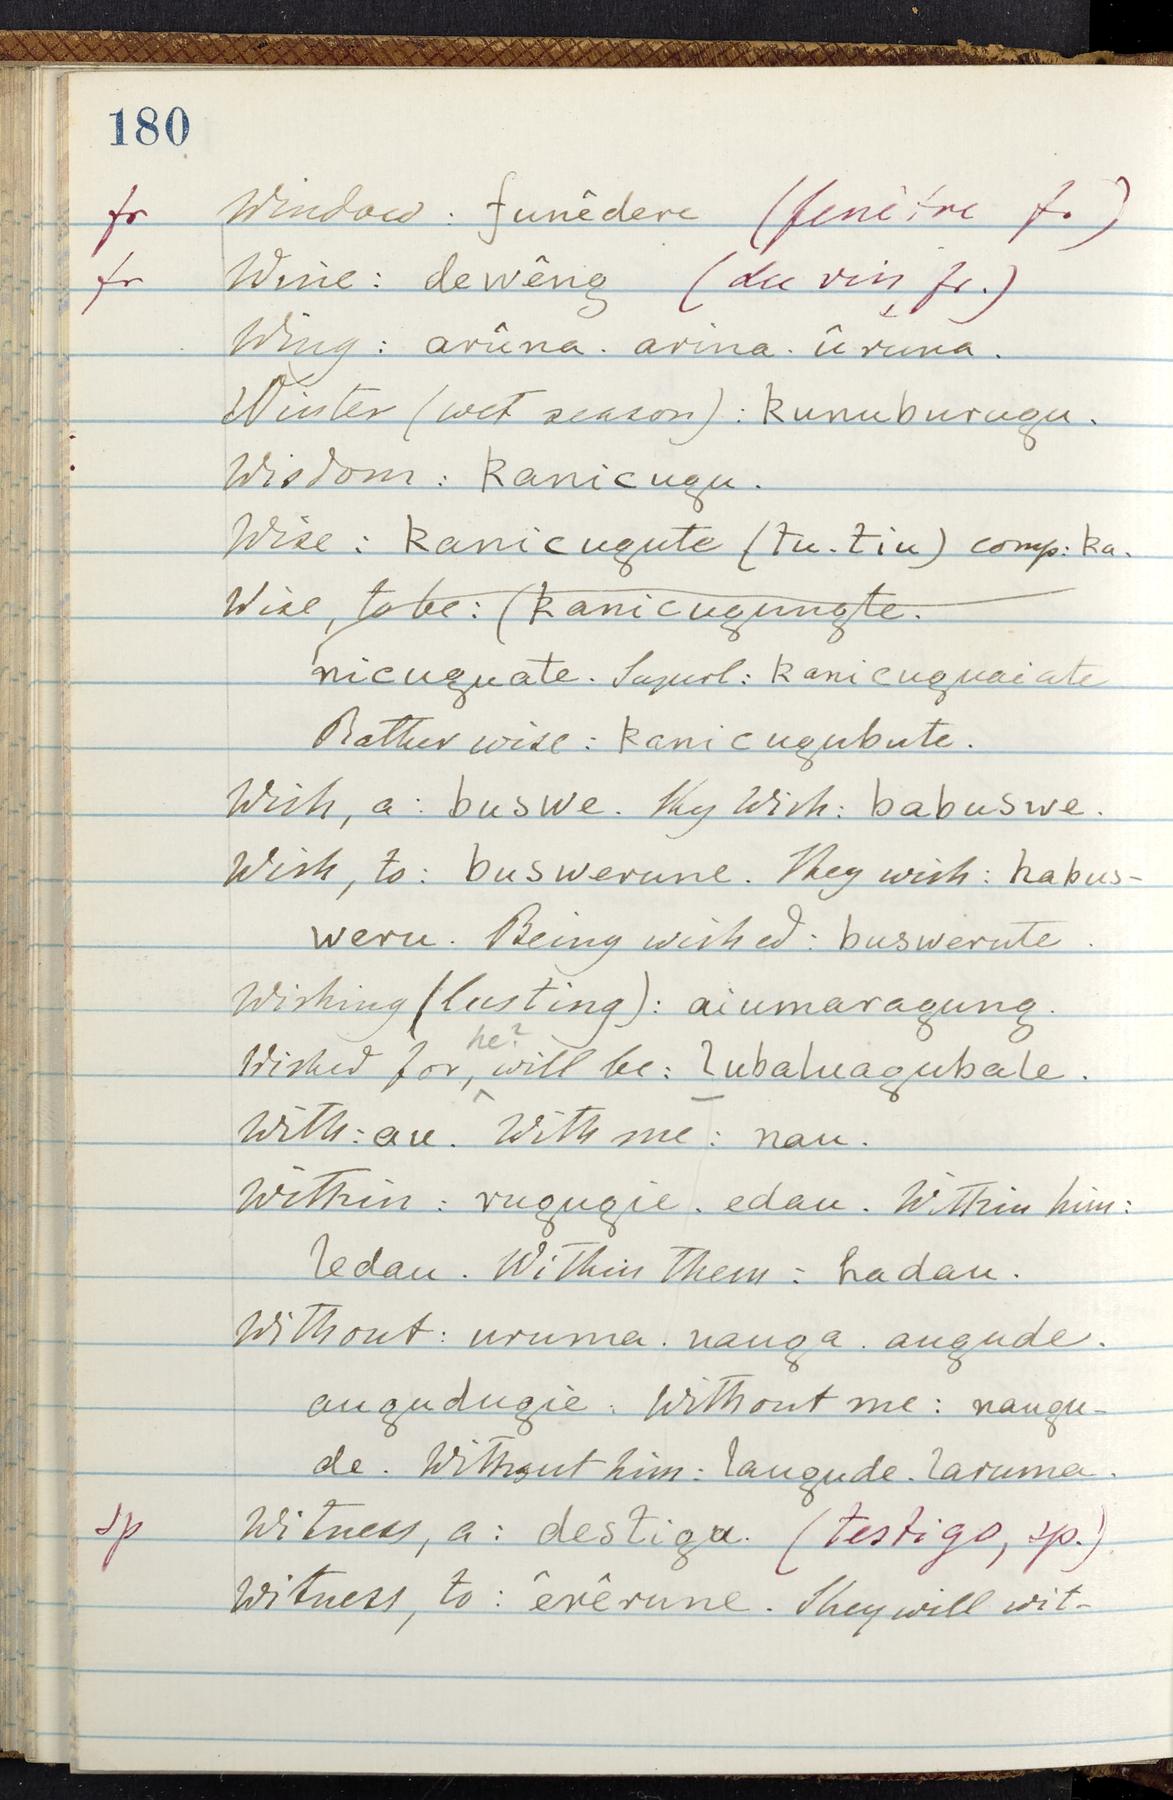 180
fr Window. funêdere (fenêtre fr.)
fr Wine: dewêng (du vin, fr.)
Wing: arûna. arina. ûruna.
Winter (wet season): kunuburugu.
Wisdom: kanicugu.
Wise: kanicugute (tu. tiu) comp: ka-
Wise, to be: (kanicugungte.
nicuguate. Superl: kanicuguaiate
Rather wise: kanicugubute.
Wish, a: buswe. Thy Wish: babuswe.
Wish, to: buswerune. They wish: habus-
weru. Being wished: buswerute.
Wishing (lusting): aiumaragung.
he?
Wished for, will be: lubaluagubale.
With: au. With me: nau.
Within: rugugie. edau. Within him:
ledau. Within them: hadau.
Without: uruma. uauga. augude.
augudugie. Without me: naugu-
de. Without him: laugude. laruma.
sp Witness, a: destigu. (testigo, sp.)
Witness, to: êrêrune. They will wit-